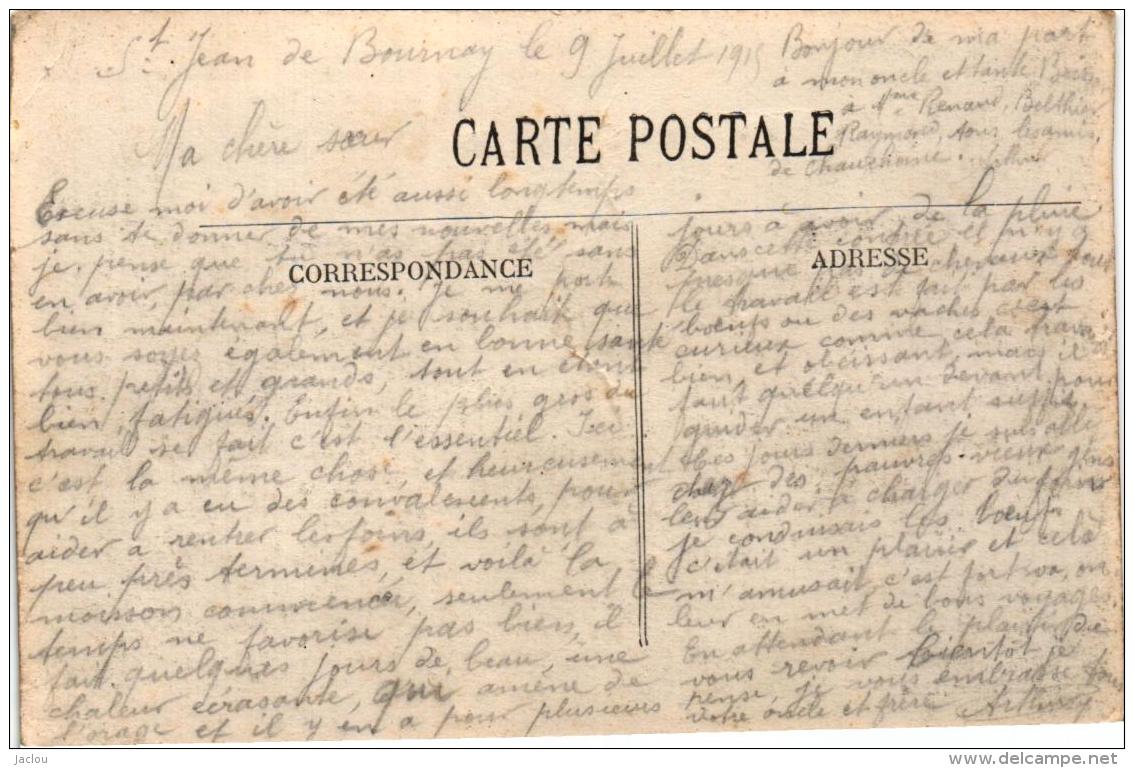 St Jean de Bournay le 9 Juillet 1915
Ma chère sœur
CARTE POSTALE
Excuse moi d'avoir été aussi longtemps
sans te donner de mes nouvelles mais
je pense que tu n'as pas été sans
en avoir, par chez nous. Je me porte
CORRESPONDANCE
bien maintenant, et je souhait que
vous soyez également en bonne santé
tous petits et grands, tout en étant
bien fatigués. Enfin le plus gros du
travail se fait c'est l'essentiel. Ici
c'est la même chose, et heureusement
qu'il y a eu des convalescents, pour
aider à rentrer les foins, ils sont à
peu près terminés, et voilà la
moisson commencée, seulement le
temps ne favorise pas bien, il
fait quelques jours de beau, une
chaleur écrasante, qui amène de
l'orage et il y en a pour plusieurs
jours à avoir de la pluie
Dans cette contrée il n'y a
ADRESSE
presque pas de chevaux tout
le travail est fait par les
bœufs ou des vaches c'est
curieux comme cela travaille
bien, et obéissant, mais il
faut quelqu'un devant pour
guider un enfant suffit.
Ces jours derniers je suis allé
chez des pauvres vieux gens
leur aider à charger du foin
je conduisais les bœufs
c'était un plaisir et cela
m'amusait, c'est fort va, on
leur en met de bons voyages.
En attendant le plaisir de
vous revoir bientôt je
pense, je vous embrasse tous
votre oncle et frère Arthur
Bonjour de ma part
à mon oncle et tante
à Mme Renaud, Belthier
Raymond, tous les amis,
de
Arthur
Jaclou
www.delcampe.net